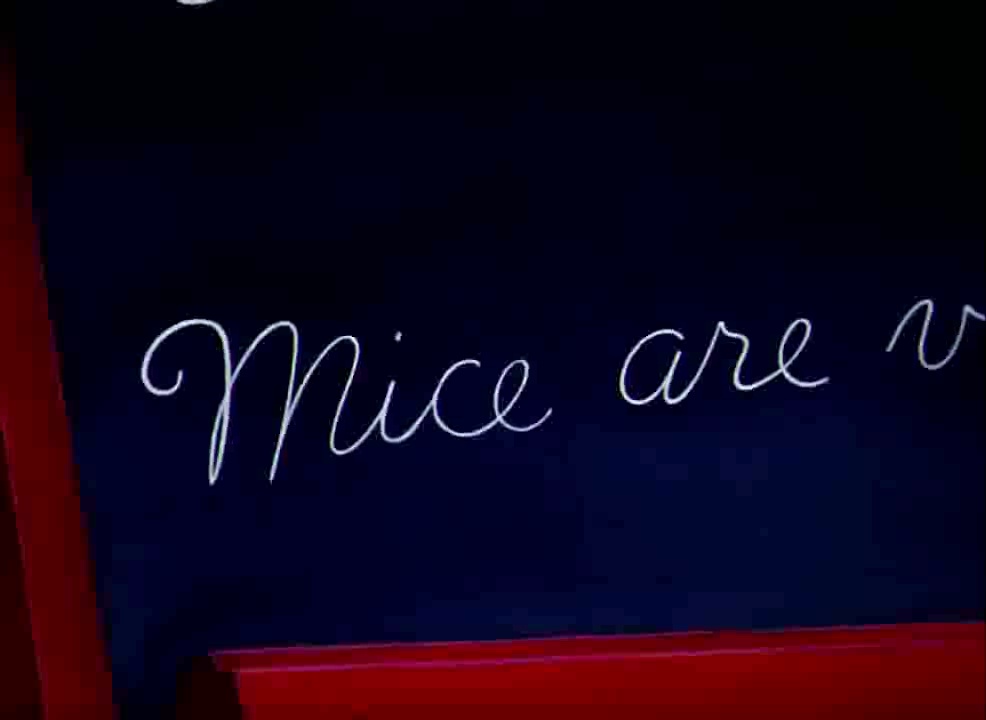 Mice are